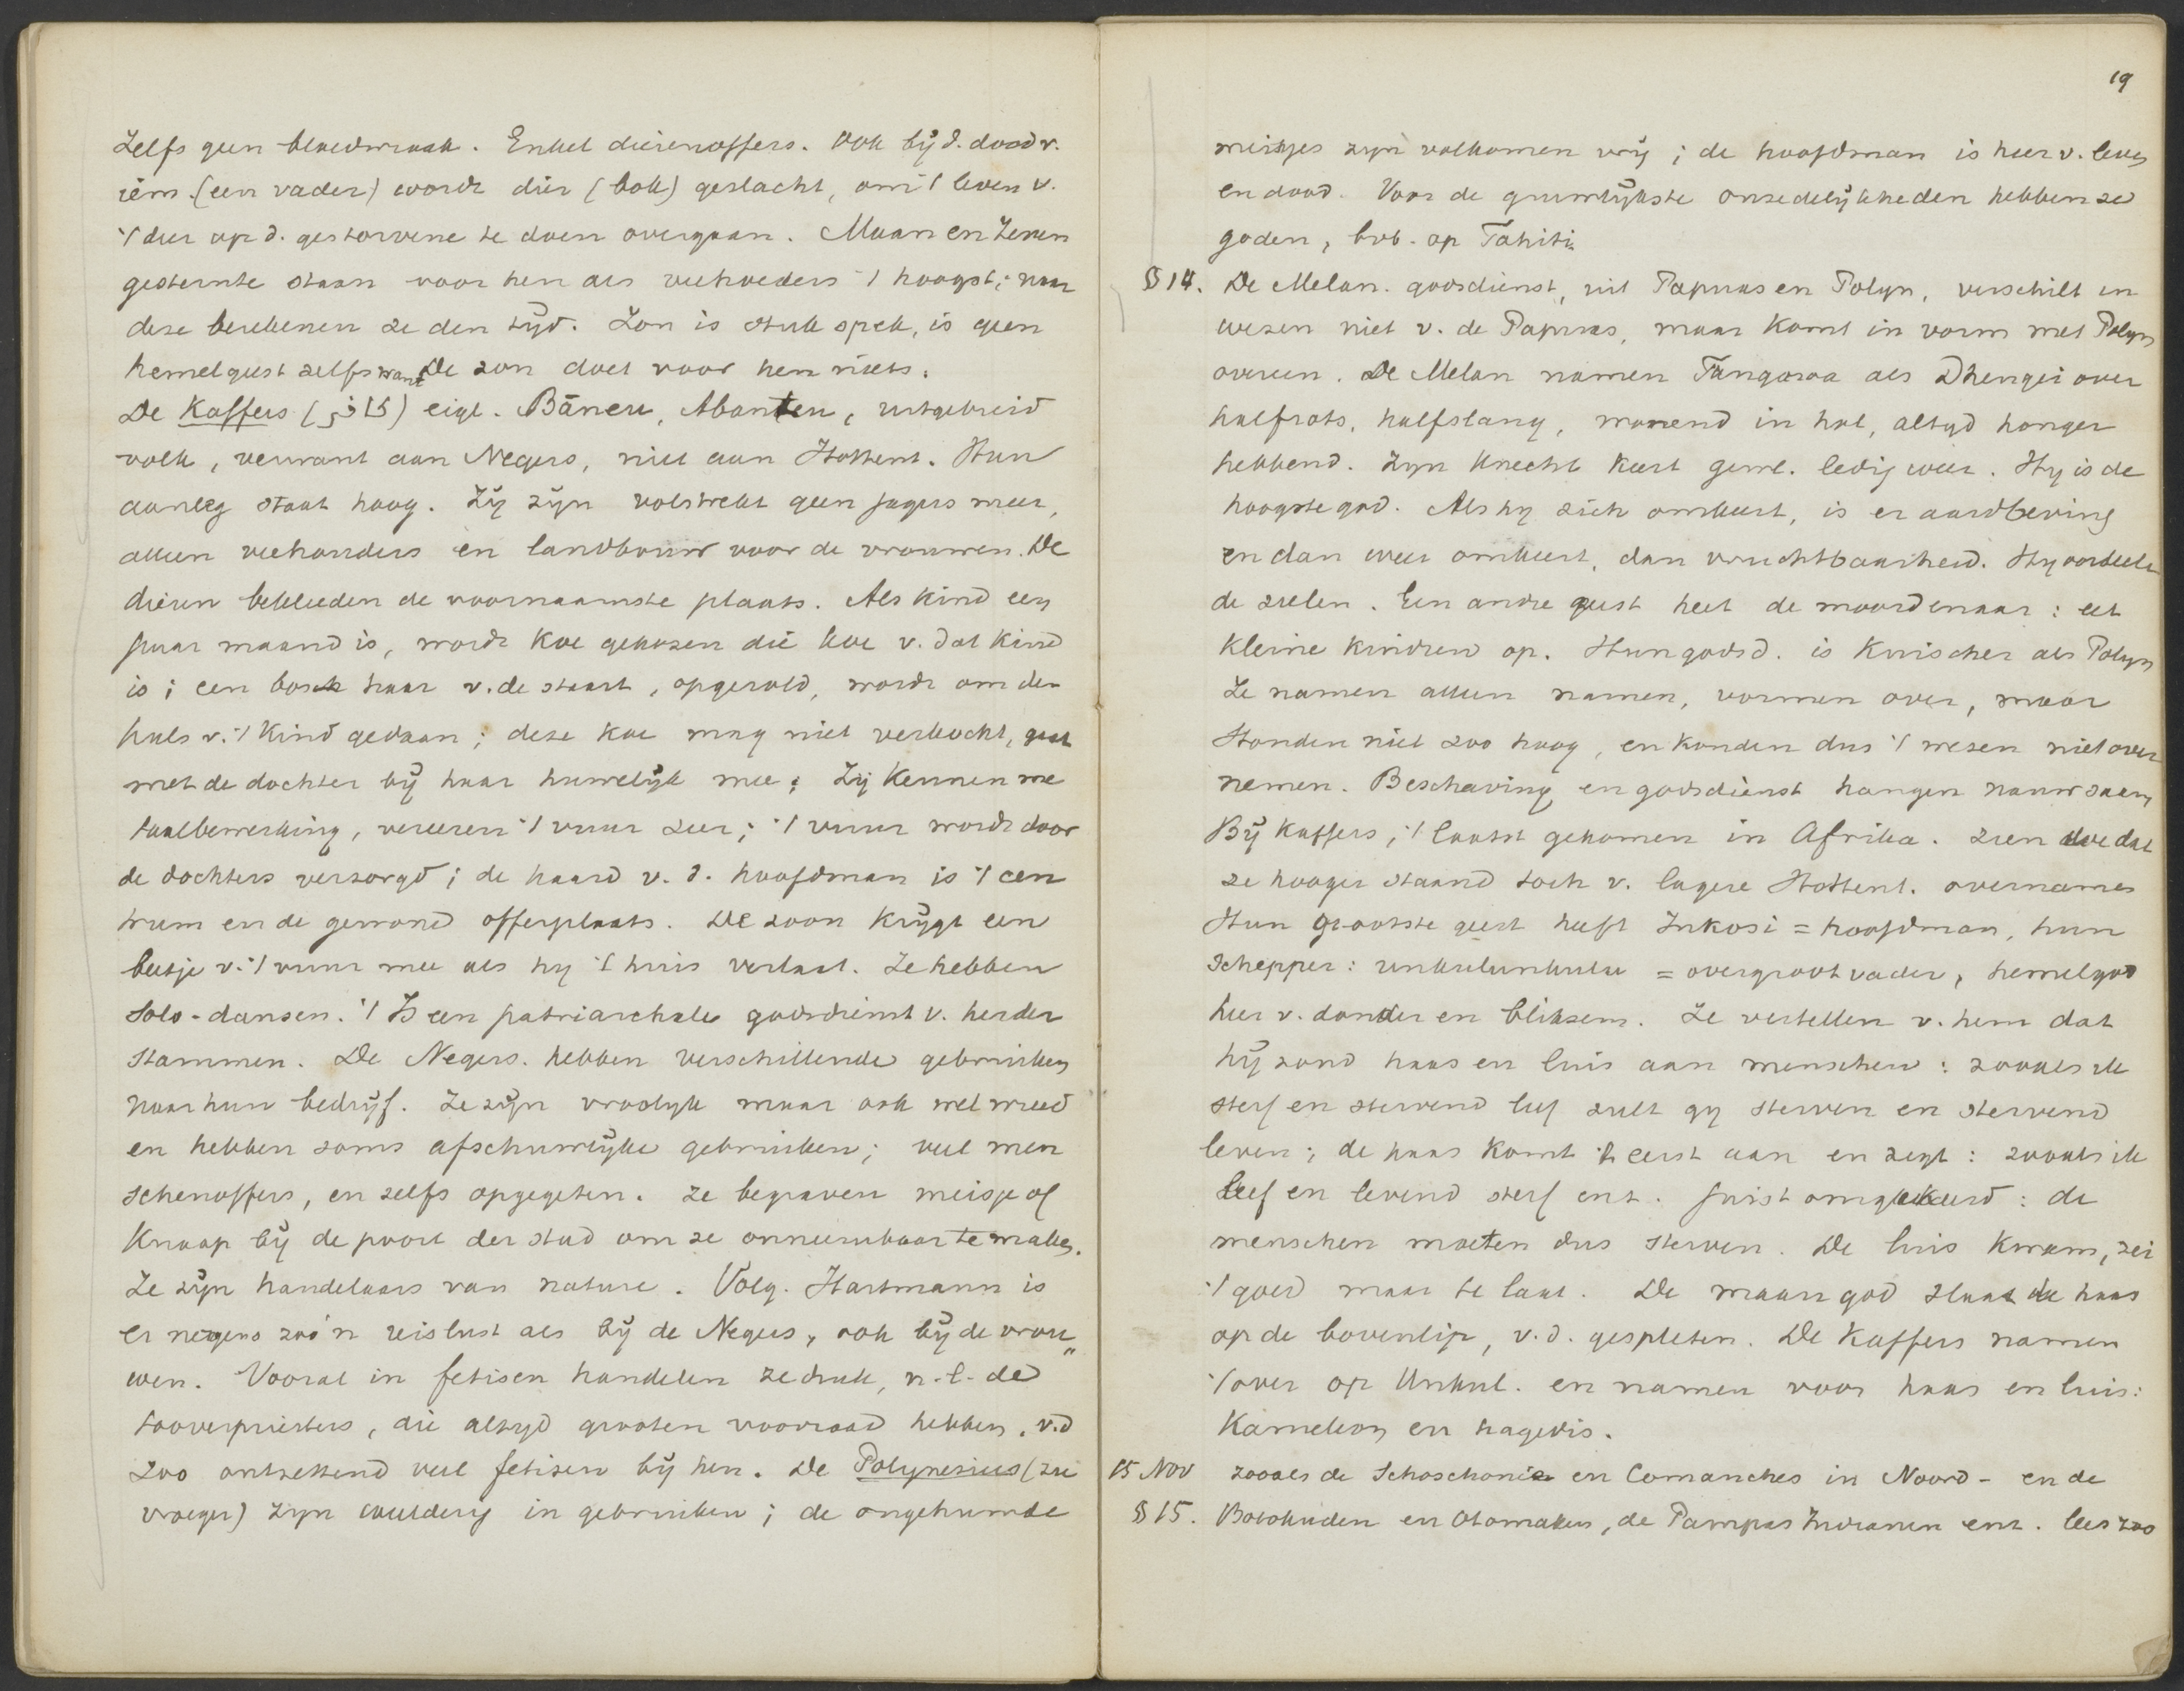 Zelfs geen bloedwraak. Enkel dierenoffers. Ook bij d. dood v.
iem. (een vader) wordt dier (bok) geslacht, om 't leven v.
't dier op d. gestorvene te doen overgaan. Maan en Zeven
gesternte staan voor hen als veehoeders 't hoogst; naar
deze berekenen ze den tijd. Zon is stuk spek, is geen
hemelgeest zelfs want De zon doet voor hen niets.
De Kaffers (كافر) eigl. Bāneu, Abanten, uitgebreid
volk, verwant aan Negers, niet aan Hottent. Hun
aanleg staat hoog. Zij zijn volstrekt geen jagers meer,
alleen veehouders en landbouw voor de vrouwen. De
dieren bekleeden de voornaamste plaats. Als kind een
paar maand is, wordt koe gekozen die koe v. dat kind
is; een bosch haar v. de staart, opgerold, wordt om den
hals v. 't kind gedaan; deze koe mag niet verkocht, gaat
met de dochter bij haar huwelijk mee; Zij kennen me
taalbewerking, vereeren 't vuur zeer; 't vuur wordt door
de dochters verzorgd; de haard v. d. hoofdman is 't cen
trum en de gewone offerplaats. De zoon krijgt een
beetje v. 't vuur mee als hij 't huis verlaat. Ze hebben
solo-dansen. 't Is een patriarchale godsdienst v. herder
stammen. De Negers. hebben verschillende gebruiken
naar hun bedrijf. Ze zijn vroolyk maar ook wel wreed
en hebben soms afschuwlijke gebruiken; veel men
schenoffers, en zelfs opgegeten. Ze begraven meisje of
Knaap bij de poort der stad om ze onneembaar te maken.
Ze zijn handelaars van nature. Volg. Hartmann is
er nergens zoo'n reislust als bij de Negers, ook bij de vrou„
wen. Vooral in fetisen handelen ze druk, n.l. de
tooverpriesters, die altyd grooten voorraad hebben. v.d
zoo ontzettend veel fetisen bij hen. De Polynesiers (zie
vroeger) zyn weelderig in gebruiken; de ongehuwde
19
meisjes zyn volkomen vrij; de hoofdman is heer v. leven
en dood. Voor de gruwlijkste onzedelijkheden hebben ze
goden, bvb. op Tahiti.
§ 14. De Melan. godsdienst, uit Papuas en Polyn, verschilt in
wezen niet v. de Papuas, maar komt in vorm met Polyn
overeen. De Melan namen Tangaroa als Dhengei over
halfrots, halfslang, wonend in hol, altyd honger
hebbend. Zyn knecht keert gewl. ledig weer. Hy is de
hoogste god. Als hy zich omkeert, is er aardbeving
en dan weer omkeert, dan vruchtbaarheid. Hy oordeelt
de zielen. Een andre geest heet de moordenaar: eet
kleine kindren op. Hun godsd. is kuischer als Polyn
Ze namen alleen namen, vormen over, maar
Stonden niet zoo hoog, en konden dus 't wezen niet over
nemen. Beschaving en godsdienst hangen nauw saam
Bij Kaffers, 't laatst gekomen in Afrika. Zien we dat
ze hooger staand toch v. lagere Hottent. overnamen
Hun grootste geest heeft Inkosi = hoofdman, hun
Schepper: unkulunkulu = overgrootvader, hemelgod
heer v. donder en bliksem. Ze vertellen v. hem dat
hij zond haas en luis aan menschen: zooals ik
sterf en stervend leef zult gy sterven en stervend
leven; de haas komt 't eerst aan en zegt: zooals ik
leef en levend sterf enz. Juist omgekeerd: de
menschen moeten dus sterven. De luis kwam, zei
't goed maar te laat. De maangod slaat de haas
op de bovenlip, v.d. gespleten. De Kaffers namen
't over op Unkul. en namen voor haas en luis:
Kameleon en hagedis.
15 Nov zooals de Schoschonie en Comanches in Noord- en de
§ 15. Botokuden en Otomaken, de Pampas Indianen enz. lees zoo